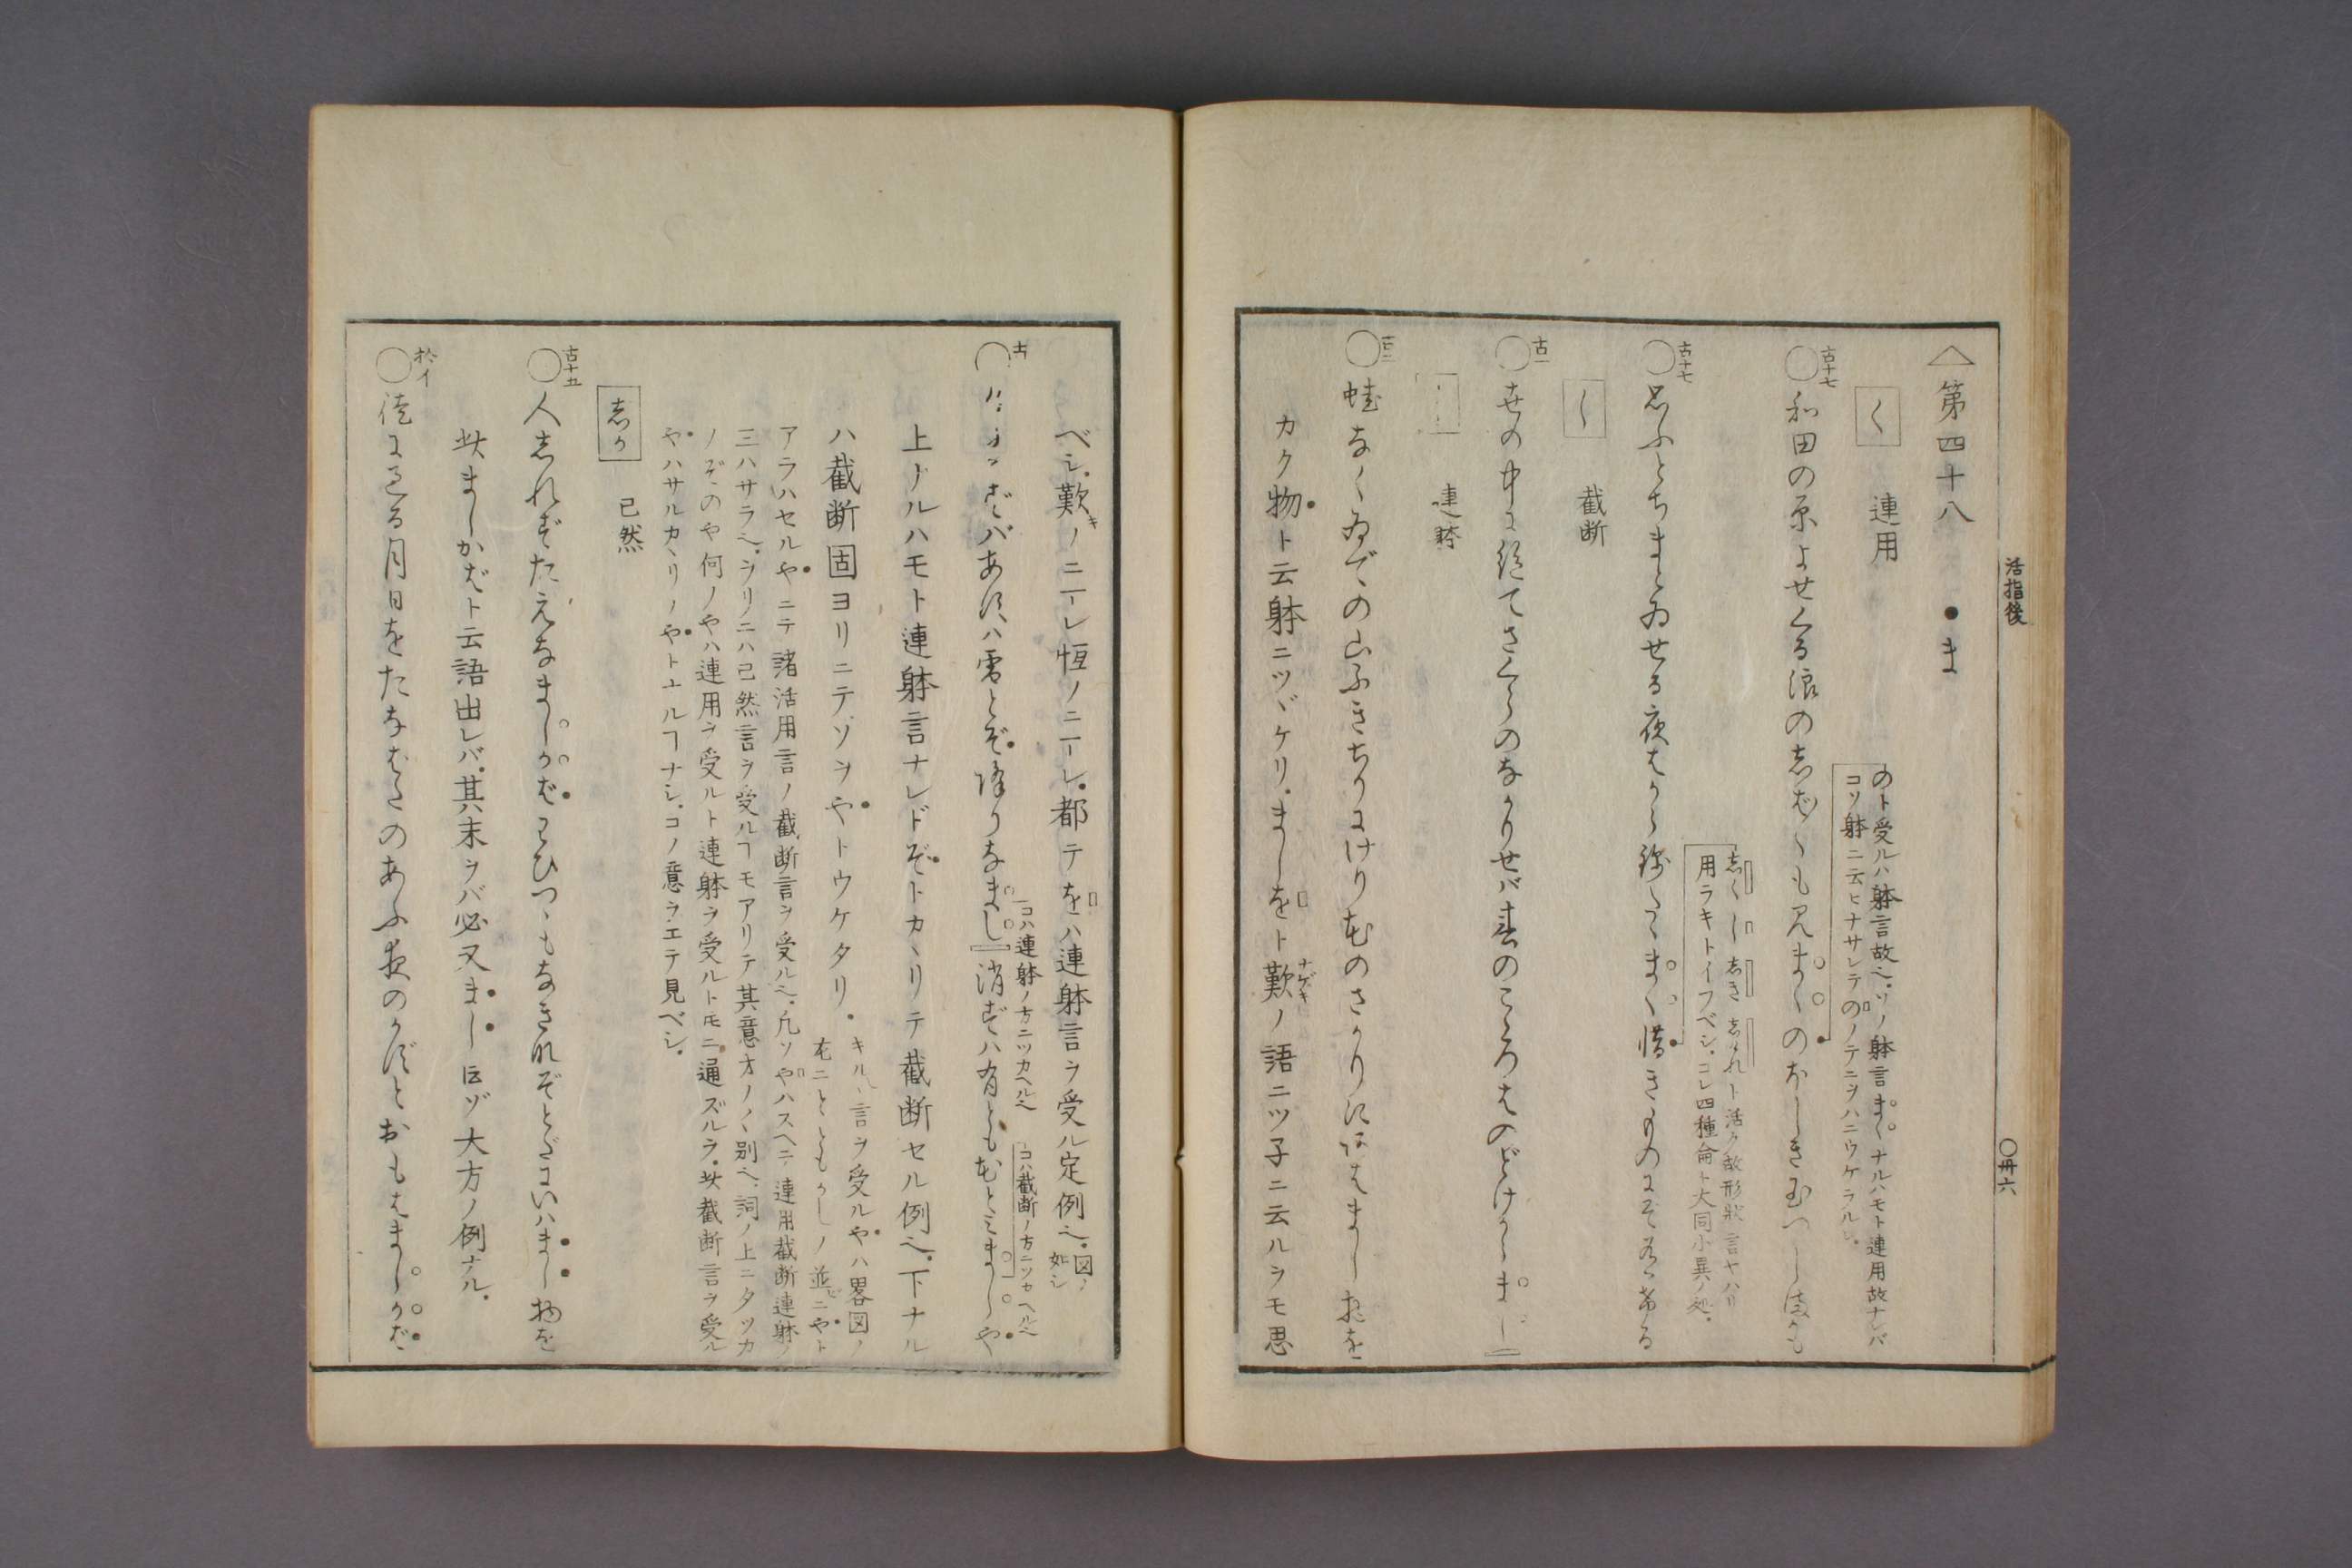 活指後
〇卅六
△第四十八 ●ま
く 連用
のト受ルハ躰言故也。ソノ躰言まくナルハモト連用故ナレバ
コソ躰ニ云ヒナサレテのノテニヲハニウケラルレ。
古十七
〇和田の原よせくる浪の志ば〱も見まくのほしき玉つしまかも
志く し 志き 志けれト活ク故形状言ヤハリ
用ラキトイフベシ。コレ四種侖ト大同小異ノ処。
古十七
〇思ふとちまとゐせる夜はから錦たゝまく惜きものにそありける
し 截断
古一
〇世の中に絶てさくらのなかりせバ春のこゝろはのどけからまし
連躰
古二
〇蛙なくゐでの山ふきちりにけり花のさかりにあはまし物を
カク物ト云躰ニツヾケリ。ましをト歎ノ語ニツ子ニ云ルヲモ思
ナゲキ
ベシ。歎ノニーレ恒ノニーレ。都テをハ連躰言ヲ受ル定例也。図ノ
如シ
コハ連躰ノ方ニツカヘル也
コハ截断ノ方ニツカヘル也
バあすハ雪とぞ降りなまし消ずハ有とも花とミましや
上ナルハモト連躰言ナレドぞトカヽリテ截断セル例也。下ナル
ハ截断固ヨリニテソヲやトウケタリ。
キルヽ言ヲ受ルやハ畧図ノ
左ニとともかしノ並ニやト
アラハセルやニテ諸活用言ノ截断言ヲ受ル也。凡ソやハスヘニ連用截断連躰ノ
三ハサラ也。ヲリニハ已然言ヲ受ルヿモアリテ其意オノ〱別也。詞ノ上ニタツカ
ノぞのや何ノやハ連用ヲ受ルト連躰ヲ受ルトモニ通ズルヲ。此截断言ヲ受ル
やハサルカヽリノやトナルヿナシ。コノ意ヲエテ見ベシ。
志か 已然
古十五
〇人志れずたえなましかばわひつゝもなき名ぞとだにいハまし物を
此ましかばト云語出レバ。其末ヲバ必又まし伝ゾ大方ノ例ナル。
〇徒に過る月日をたなばたのあふ夜のかずとおもはましかば